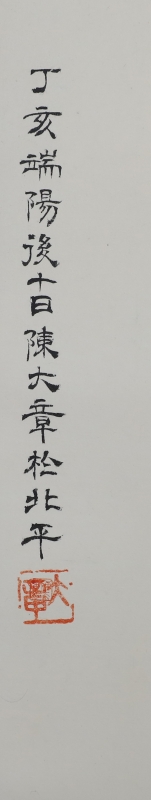 丁亥端陽後十日陳大章於北平
大章